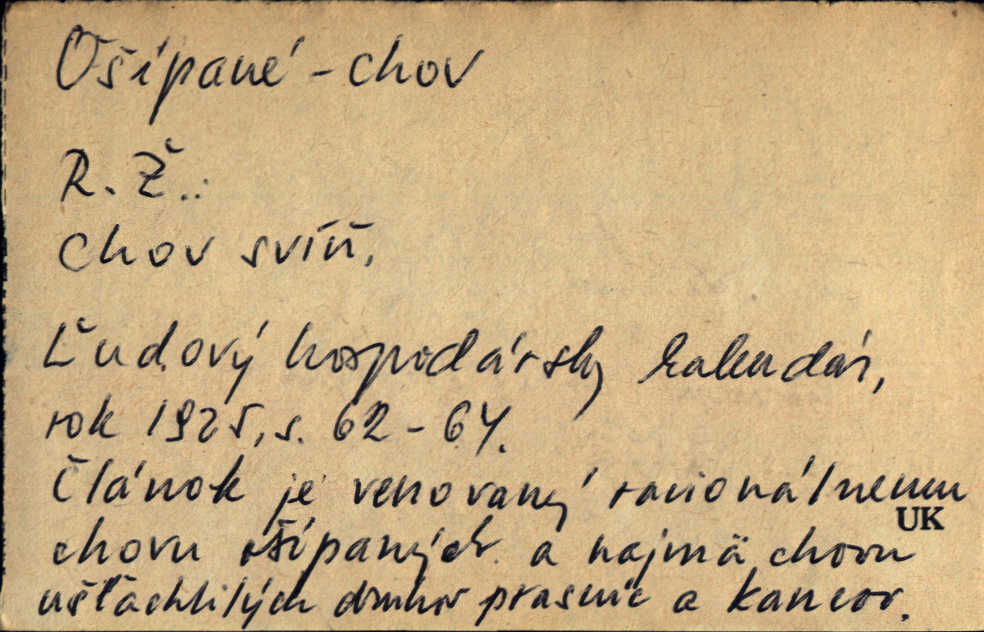 Ošípané - chov
R. Ž.:
Chov svíň.
Ľudový hospodársky kalendár,
rok 1925, s. 62 - 64.
Článok je venovaný racionálnemu
UK
chovu ošípaných a najmä chovu
ušľachtilých druhov prasníc a kancov.